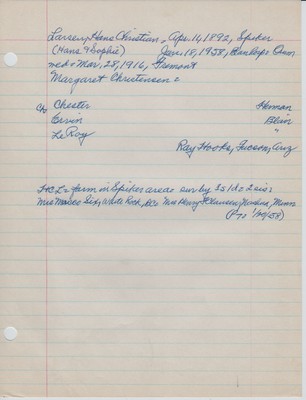 Larsen, Hans Christian, Apr. 14, 1892, Spiker
(Hans & Sophie) Jan. 18, 1958, Danksgr Cem
wed = Mar. 28, 1916, Fremont
Margaret Christensen =
Ch Chester Herman
Ervin Blair
LeRoy "
Ray Hooks, Tucson, Ariz
farm in Spiker area = sur by 3s/d = 2sis =
Mrs Six, White Rock, Mrs Henry Clausen, Minn
(P-T 1/20/58)